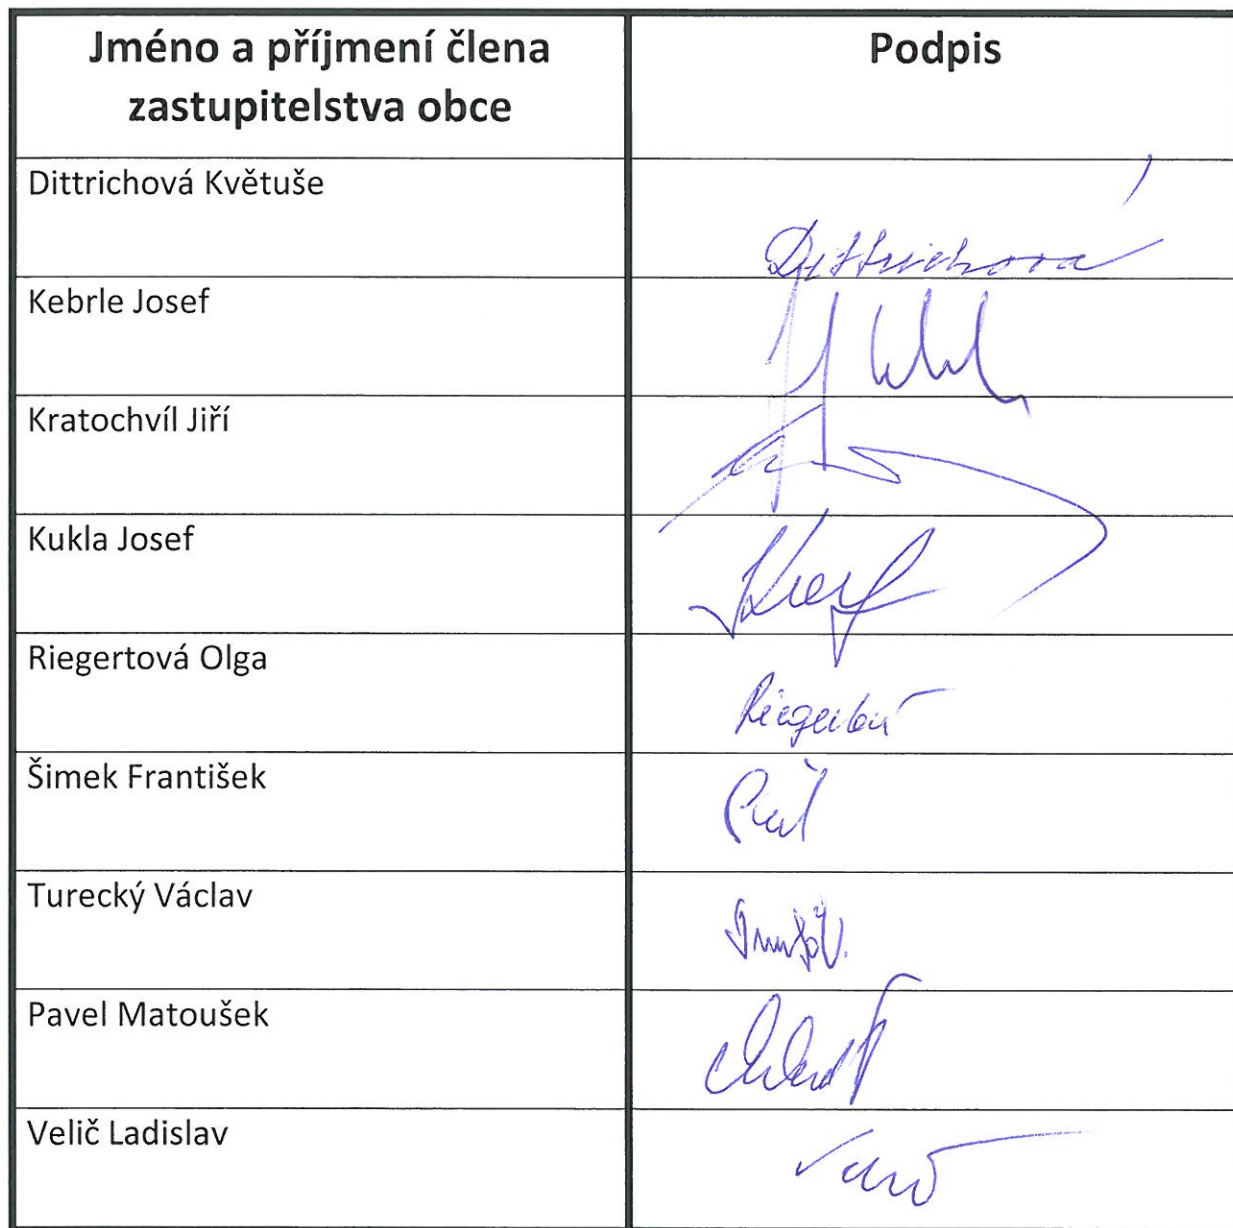 Jméno a příjmení člena
zastupitelstva obce
Podpis
Dittrichová Květuše
Dittrichová
Kebrle Josef
Kratochvíl Jiří
Kukla Josef
Riegertová Olga
Šimek František
Turecký Václav
Pavel Matoušek
Velič Ladislav